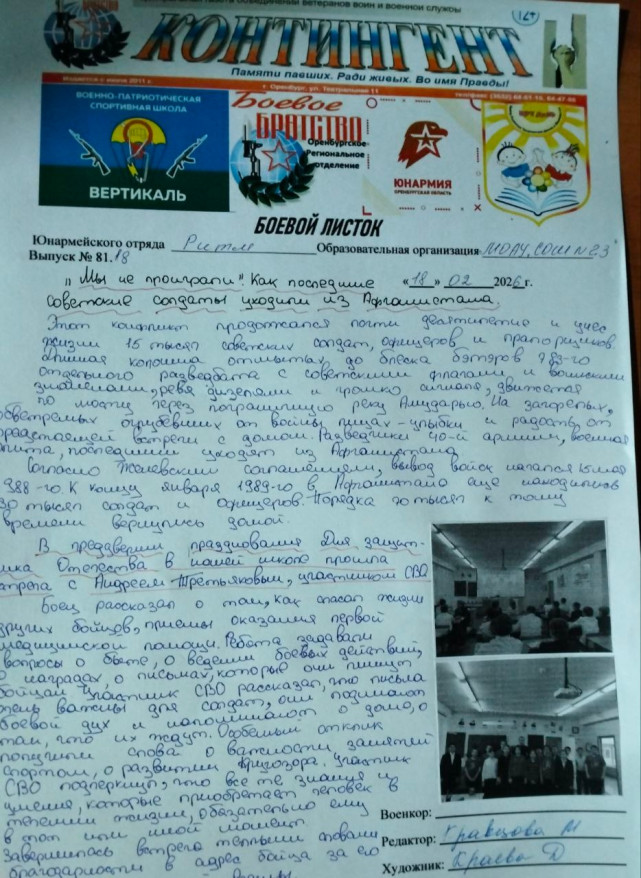 объединений ветеранов войн и военной службы
12+
БРАТСТВО
КОНТИНГЕНТ
Памяти павших. Ради живых. Во имя Правды!
Издается с июля 2011 г.
г. Оренбург, ул. Театральная 11
ВОЕННО-ПАТРИОТИЧЕСКАЯ
СПОРТИВНАЯ ШКОЛА
ВЕРТИКАЛЬ
Боевое
БРАТСТВО
Оренбургское
Региональное
отделение
ЮНАРМИЯ
ОРЕНБУРГСКАЯ ОБЛАСТЬ
БОЕВОЙ ЛИСТОК
Юнармейского отряда Ритм Образовательная организация МОАУ СОШ N 23
Выпуск № 81.18
"Мы не проиграли". Как последние «18» 02 2026г.
советские солдаты уходили из Афганистана.
Этот конфликт продолжался почти десятилетие и унес
жизни 15 тысяч советских солдат, офицеров и прапорщиков.
колонна отмытых до блеска бэтэров 783-го
отдельного разведбата с советскими флагами и воинскими
знаменами, ревя дизелями и громко сигналя, движется
по мосту через пограничную реку Амударью. На загорелых,
обветренных огрубевших от войны лицах - улыбки и радость от
предстоящей встречи с домом. Разведчики 40-й армии, военная
элита, последними уходят из Афганистана.
Согласно Женевским соглашениям, вывод войск начался 15 мая
1988-го. К концу января 1989-го в Афганистане еще находилось
30 тысяч солдат и офицеров. Порядка 70 тысяч к тому
времени вернулись домой.
В преддверии празднования Дня защит-
ника Отечества в нашей школе прошла
встреча с Андреем Третьяковым, участником СВО.
Боец рассказал о том, как спасал жизни
других бойцов, приемы оказания первой
медицинской помощи. Ребята задавали
вопросы о быте, о ведении боевых действий,
о наградах, о письмах, которые они пишут
бойцам. Участник СВО рассказал, что письма
очень важны для солдат, они поднимают
боевой дух и напоминают о доме, о
том, что их ждут. Особенный отклик
получили слова о важности занятий
спортом, о развитии кругозора. Участник
СВО подчеркнул, что все те знания и
умения, которые приобретает человек в
течении жизни, обязательно ему
в тот или иной момент
Завершилась встреча теплыми словами
благодарности в адрес бойца за его
Военкор:
Редактор: Кравцова М
Художник: Краева Д